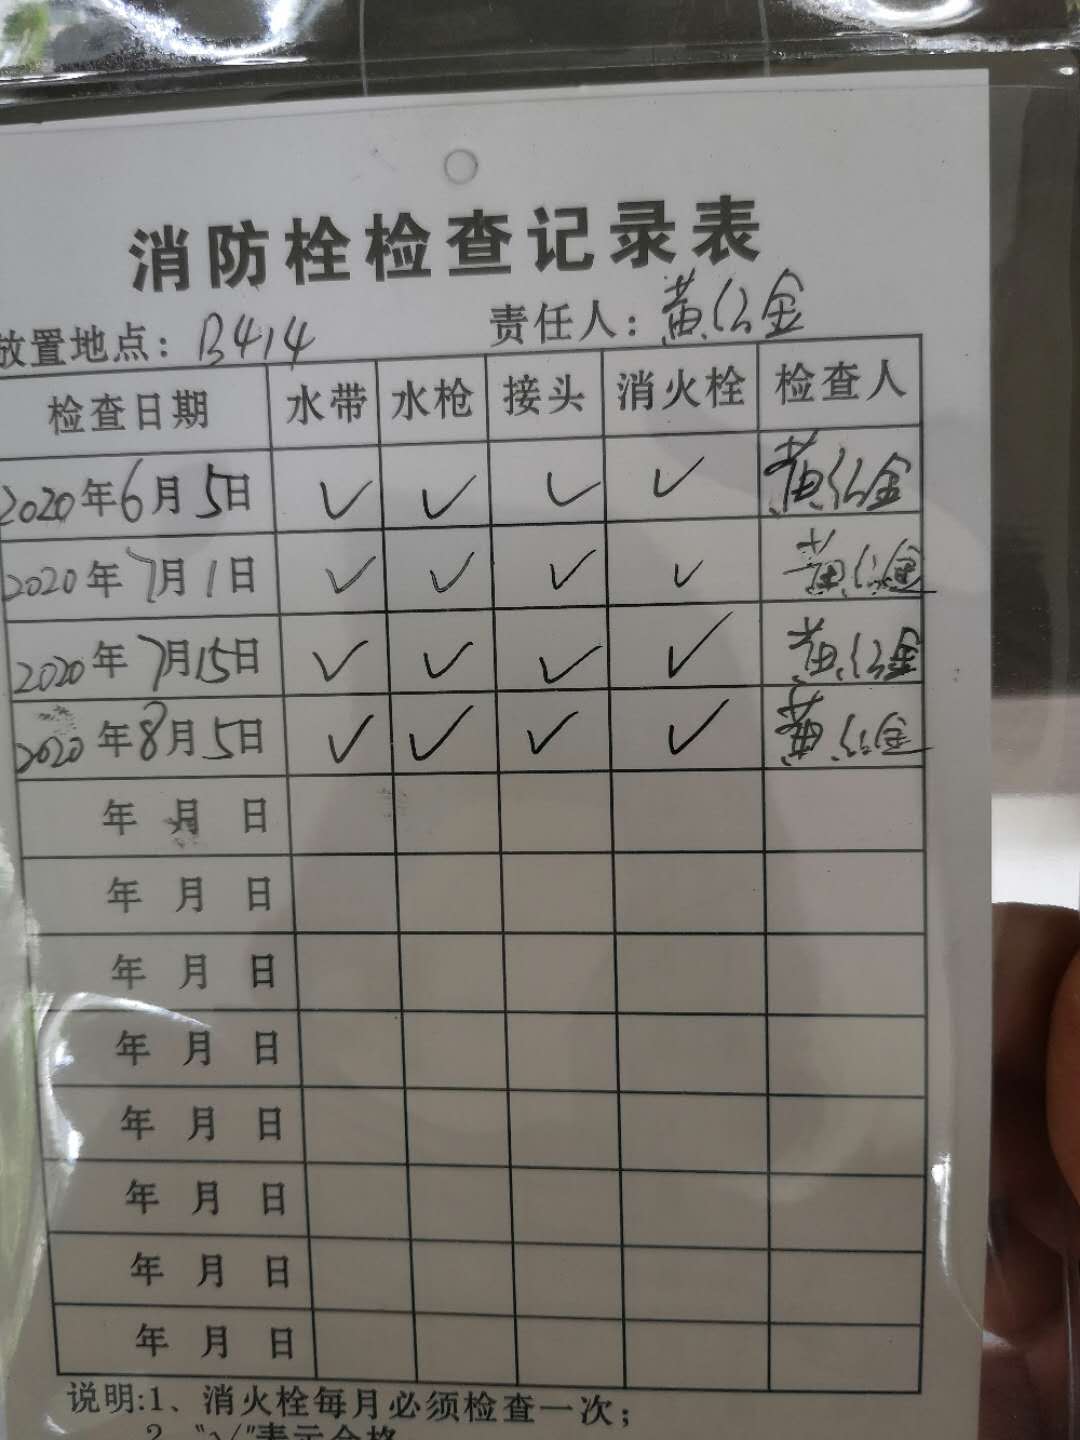 消防栓检查记录表
放置地点：B414 责任人：黄公金
检查日期 水带 水枪 接头 消火栓 检查人
2020年6月5日 √ √ √ √ 黄公金
2020年7月1日 √ √ √ √ 黄公金
2020年7月15日 √ √ √ √ 黄公金
2020年8月5日 √ √ √ √ 黄公金
年 月 日
年 月 日
年 月 日
年 月 日
年 月 日
年 月 日
年 月 日
年 月 日
说明:1、消火栓每月必须检查一次；
2、“√”表示合格